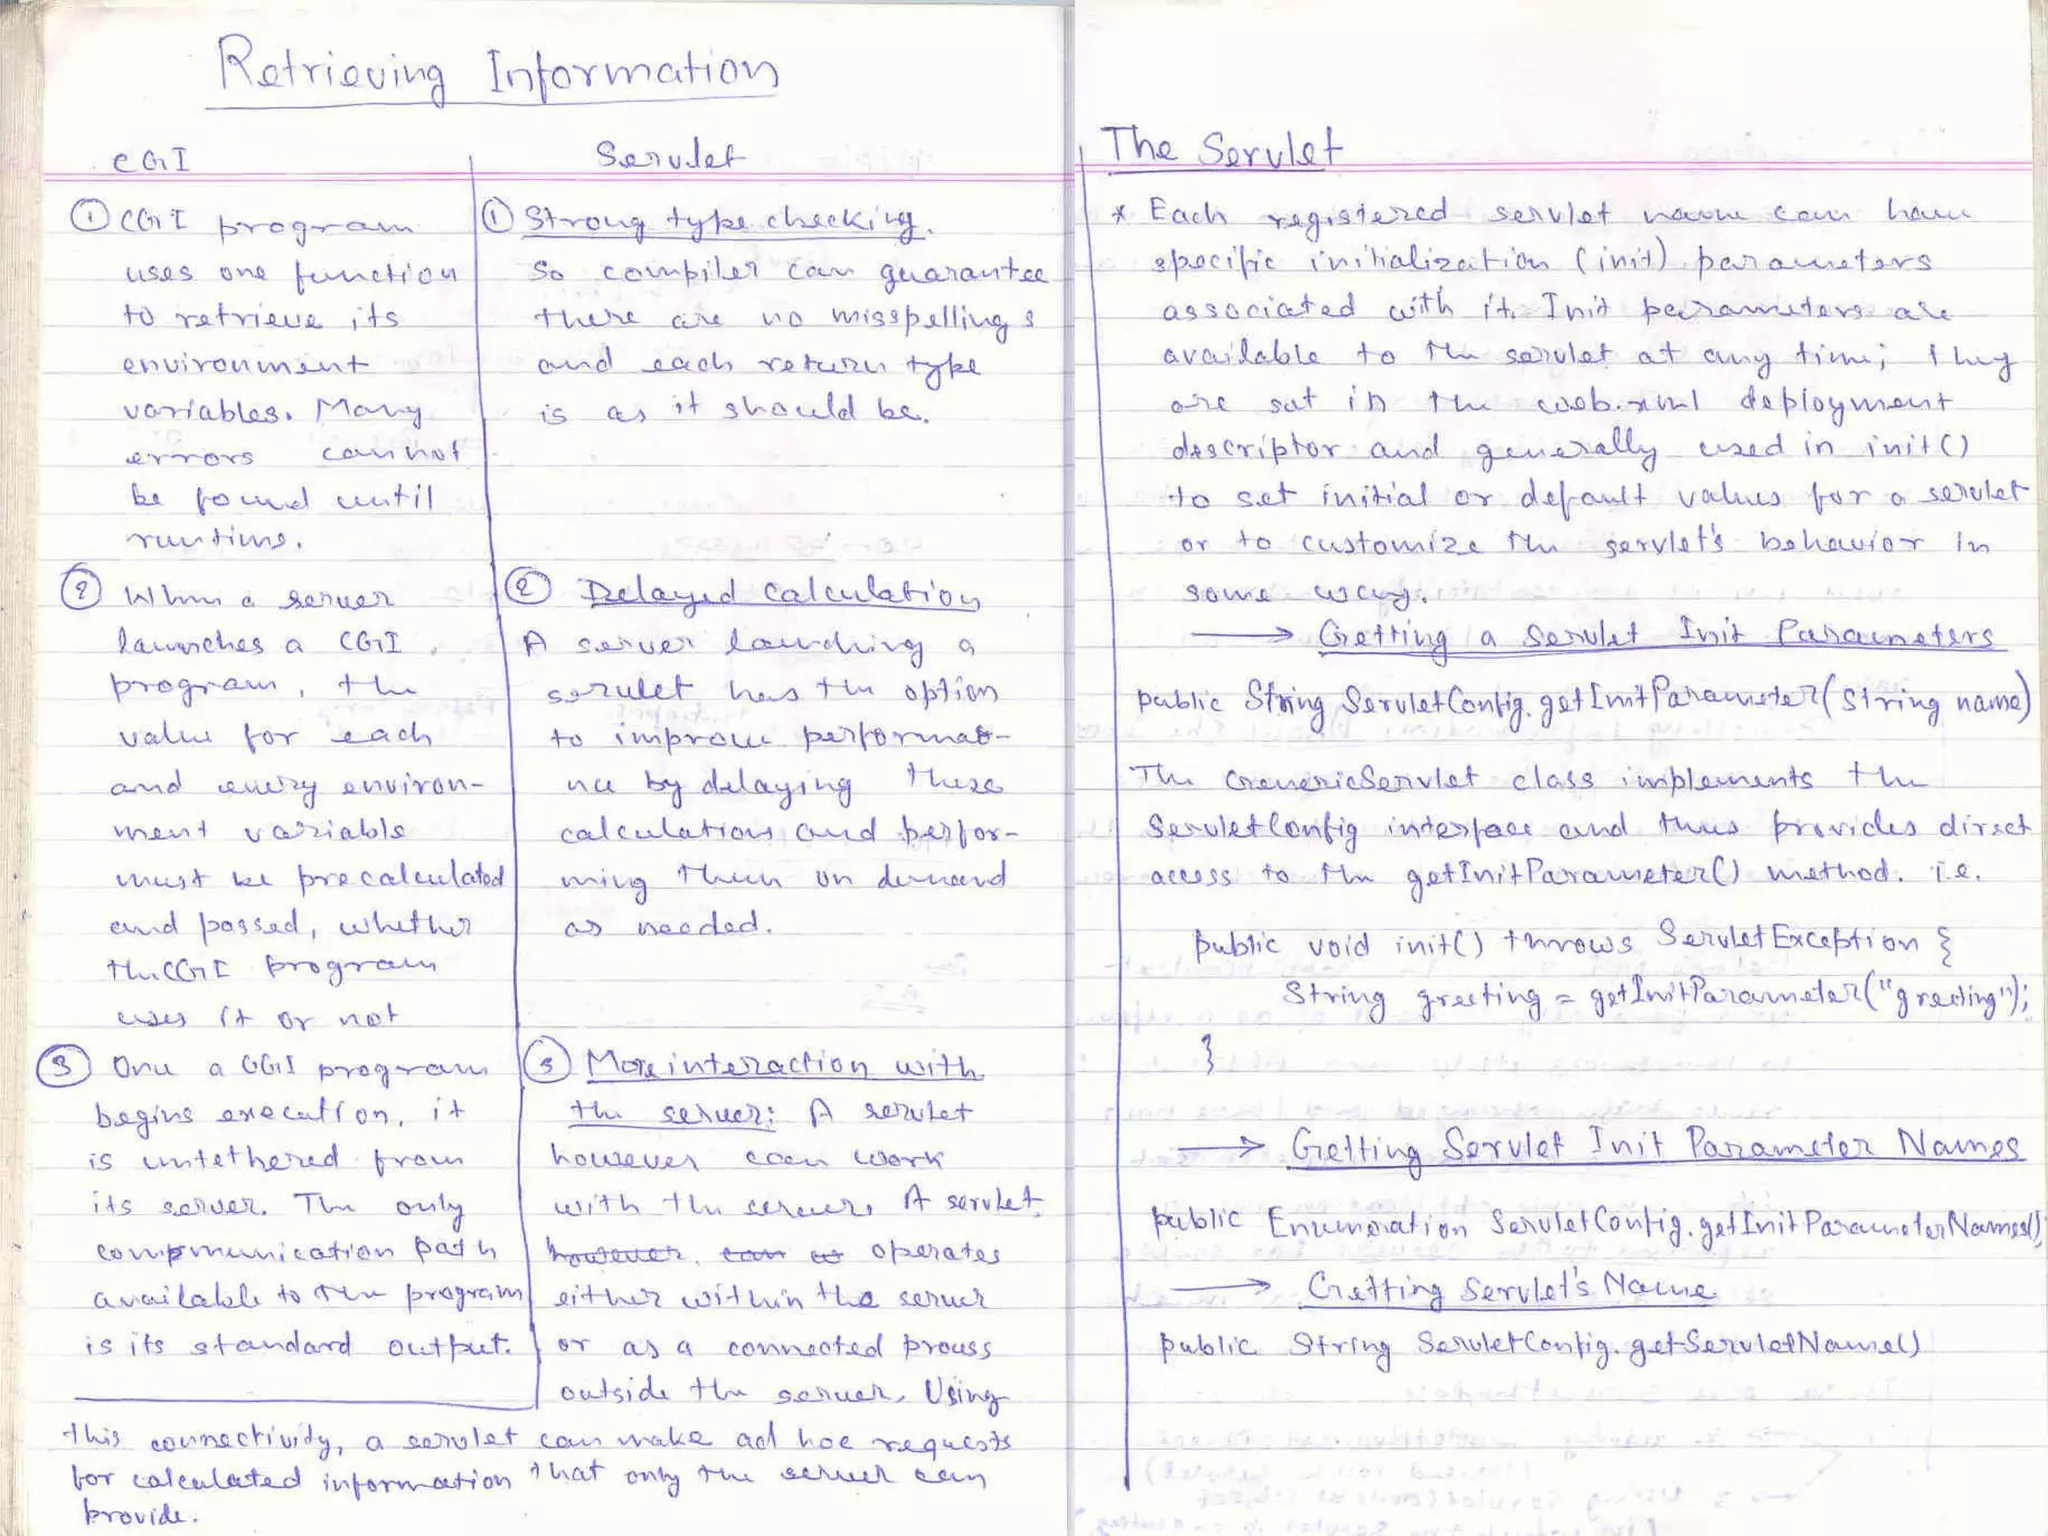 Retrieving Information
CGI
① CGI program
uses one function
to retrieve its
environment
variables. Many
errors cannot
be found until
runtime.
② When a server
launches a CGI
program, the
value for each
and every environ-
ment variable
must be precalculated
and passed, whether
the CGI program
uses it or not
③ Once a CGI program
begins execution, it
is untethered from
its server. The only
communication path
available to the program
is its standard output.
Servlet
① Strong type checking.
So compiler can guarantee
there are no misspellings
and each return type
is as it should be.
② Delayed Calculation
A server launching a
servlet has the option
to improve performa-
nce by delaying these
calculations and perfor-
ming them on demand
as needed.
③ More interaction with
the server: A servlet
however can work
with the server. A servlet,
however, can operates
either within the server
or as a connected process
outside the server. Using
this connectivity, a servlet can make ad hoc requests
for calculated information that only the server can
provide.
The Servlet
* Each registered servlet name can have
specific initialization (init) parameters
associated with it. Init parameters are
available to the servlet at any time; they
are set in the web.xml deployment
descriptor and generally used in init()
to set initial or default values for a servlet
or to customize the servlet's behavior in
some way.
→ Getting a Servlet Init Parameters
public String ServletConfig.getInitParameter(String name)
The GenericServlet class implements the
ServletConfig interface and thus provides direct
access to the getInitParameter() method. i.e.
public void init() throws ServletException {
String greeting = getInitParameter("greeting");
}
→ Getting Servlet Init Parameter Names
public Enumeration ServletConfig.getInitParameterNames();
→ Getting Servlet's Name
public String ServletConfig.getServletName()